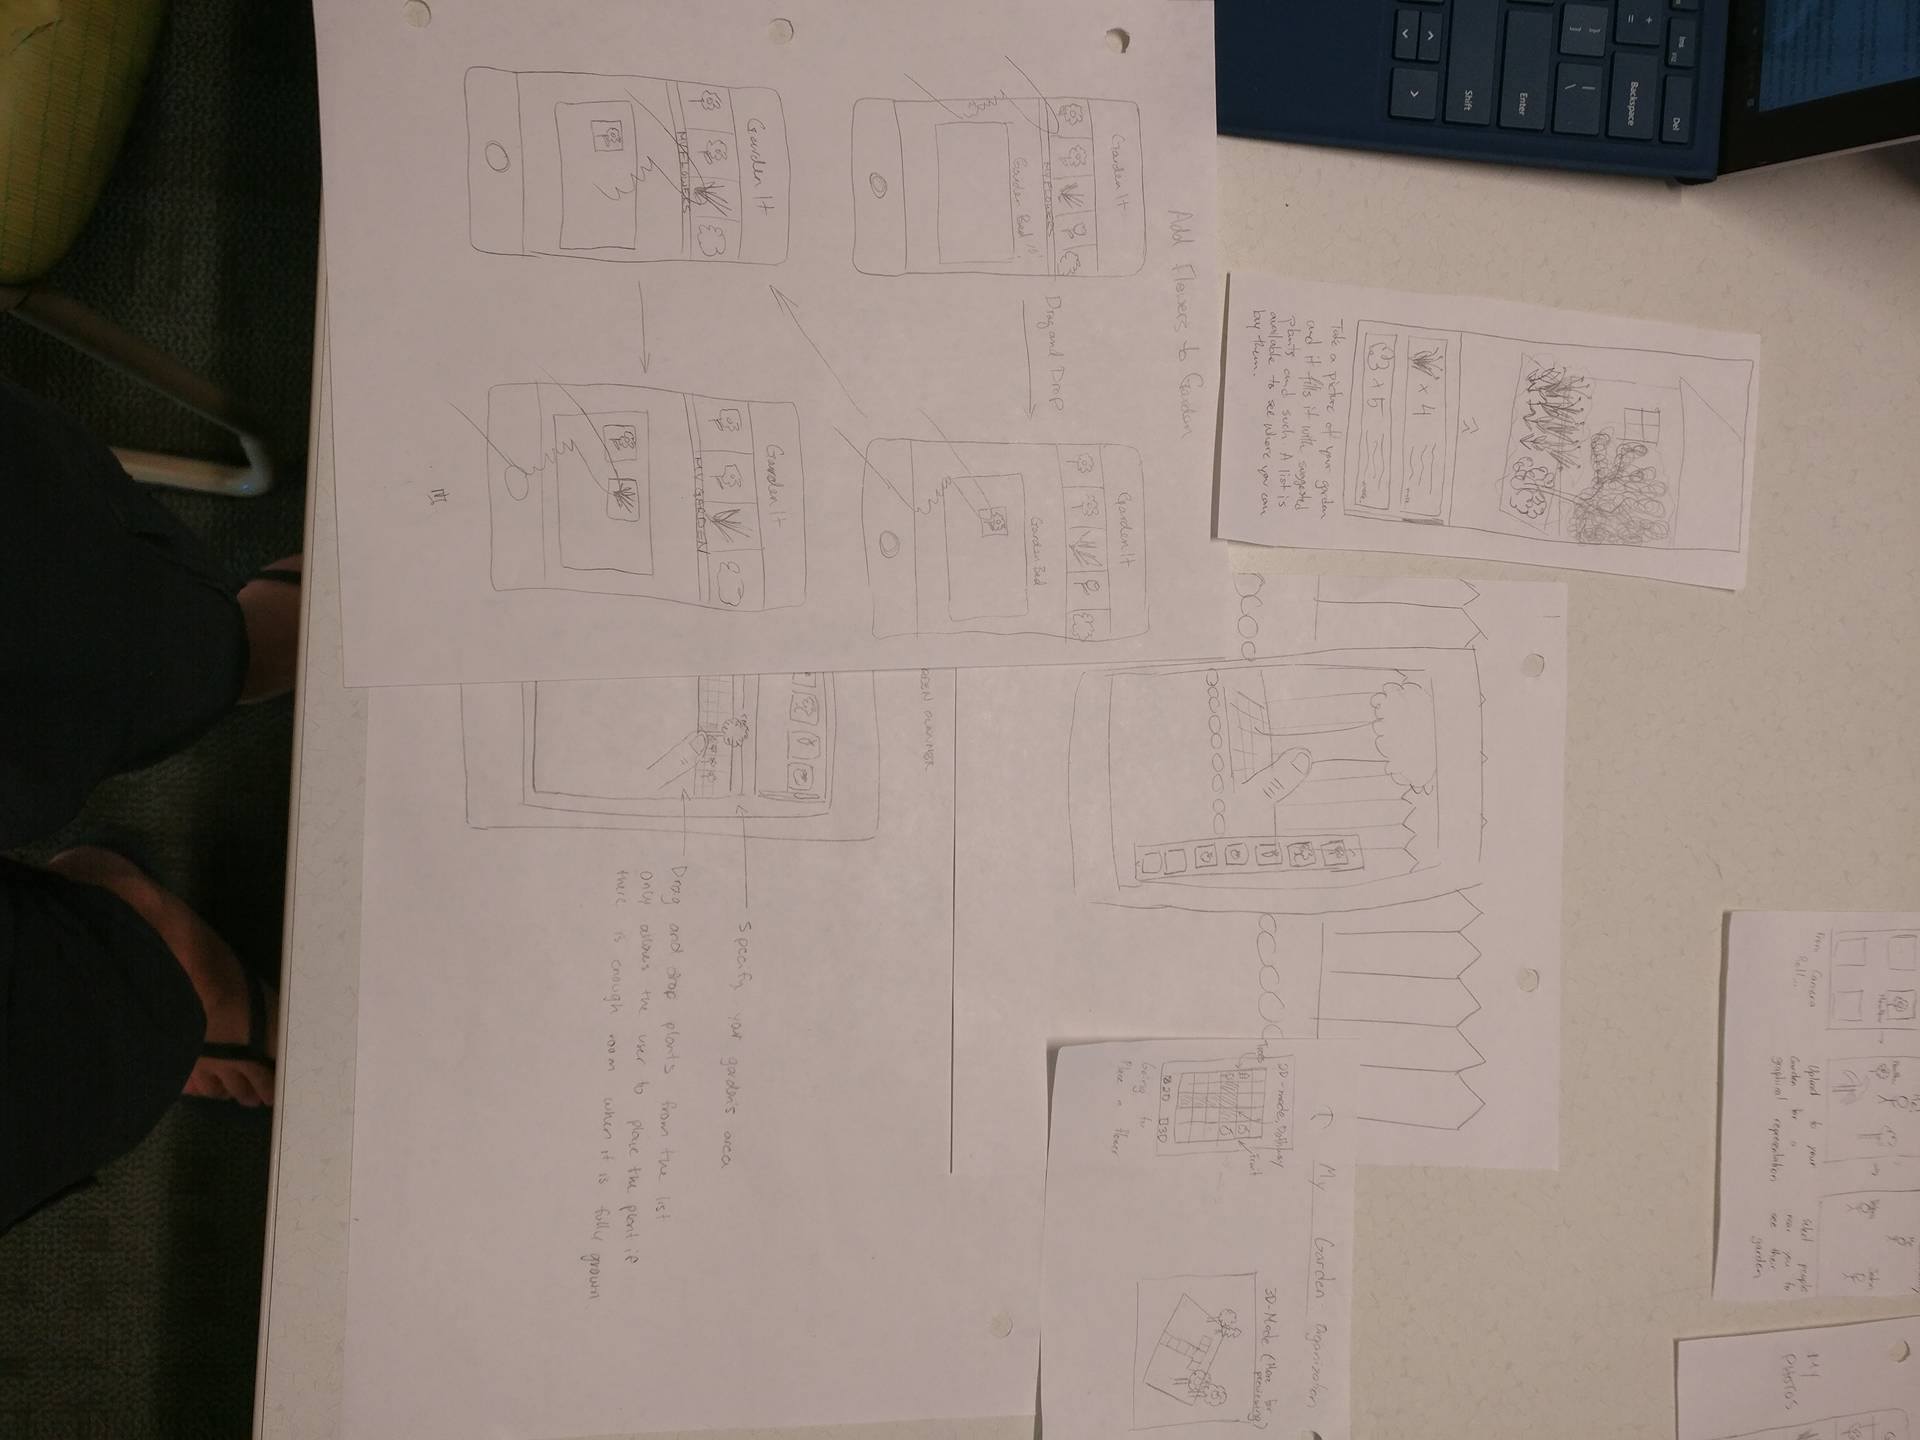 Ins
Del
+
=
Backspace
}
]
|
\
Enter
Shift
From Camera
Roll...
Me
Upload to your
Garden for a
graphical representation
John
Select people
near you to
see their
garden
MY
PHOTOS
x 4
more..
x 5
more..
Take a picture of your garden
and it fills it with suggested
plants and such. A list is
available to see where you can
buy them.
My Garden Organization
2D-mode,
Trees
Fruit
2D 3D
Going for
Place a flower
3D-Mode (More for
previewing)
Add Flowers to Garden
Garden It
MY FLOWERS
Garden Bed
Drag and Drop
Garden It
Garden Bed
Garden It
MY FLOWERS
Garden It
MY GARDEN
PLANNER
Specify your garden's area
Drag and drop plants from the list
Only allows the user to place the plant if
there is enough room when it is fully grown.